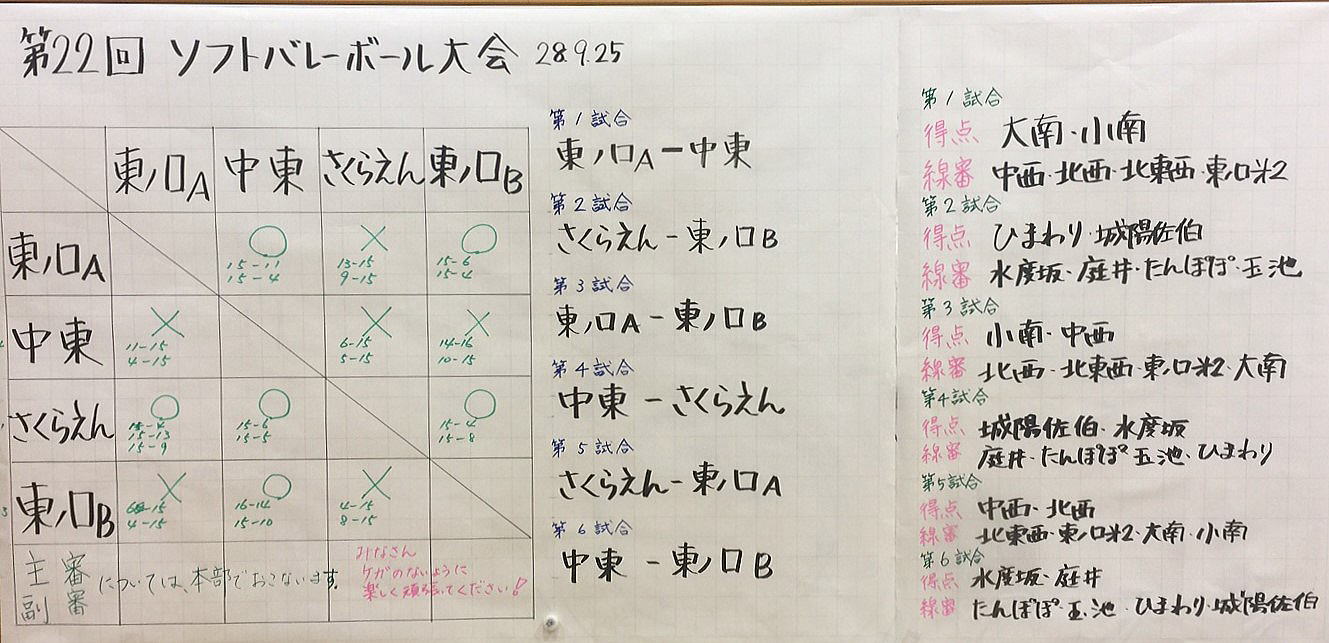 第22回 ソフトバレーボール大会 28.9.25
東ノ口A 中東 さくらえん 東ノ口B
東ノ口A ○ × ○
15-11 13-15 15-6
15-4 9-15 15-4
中東 × × ×
11-15 6-15 14-16
4-15 5-15 10-15
さくらえん ○ ○ ○
15-13 15-6 15-4
15-9 15-5 15-8
東ノ口B × ○ ×
6-15 16-14 4-15
4-15 15-10 8-15
主審
副審
については、本部でおこないます。
みなさん
ケガのないように
楽しく頑張ってください!
第1試合
東ノ口A-中東
第2試合
さくらえん-東ノ口B
第3試合
東ノ口A-東ノ口B
第4試合
中東-さくらえん
第5試合
さくらえん-東ノ口A
第6試合
中東-東ノ口B
第1試合
得点 大南・小南
線審 中西・北西・北東西・東ノ口米2
第2試合
得点 ひまわり・城陽佐伯
線審 水度坂・庭井・たんぽぽ・玉池
第3試合
得点 小南・中西
線審 北西・北東西・東ノ口米2・大南
第4試合
得点 城陽佐伯・水度坂
線審 庭井・たんぽぽ・玉池・ひまわり
第5試合
得点 中西・北西
線審 北東西・東ノ口米2・大南・小南
第6試合
得点 水度坂・庭井
線審 たんぽぽ・玉池・ひまわり・城陽佐伯